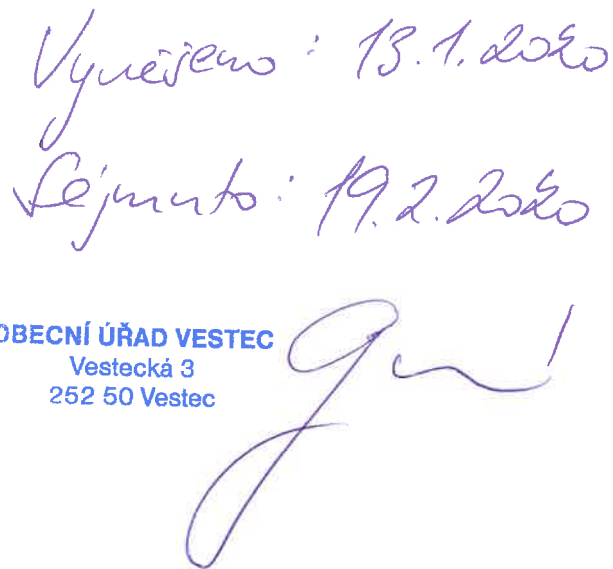 Vyvěšeno : 13.1.2020
Sejmuto : 19.2.2020
OBECNÍ ÚŘAD VESTEC
Vestecká 3
252 50 Vestec